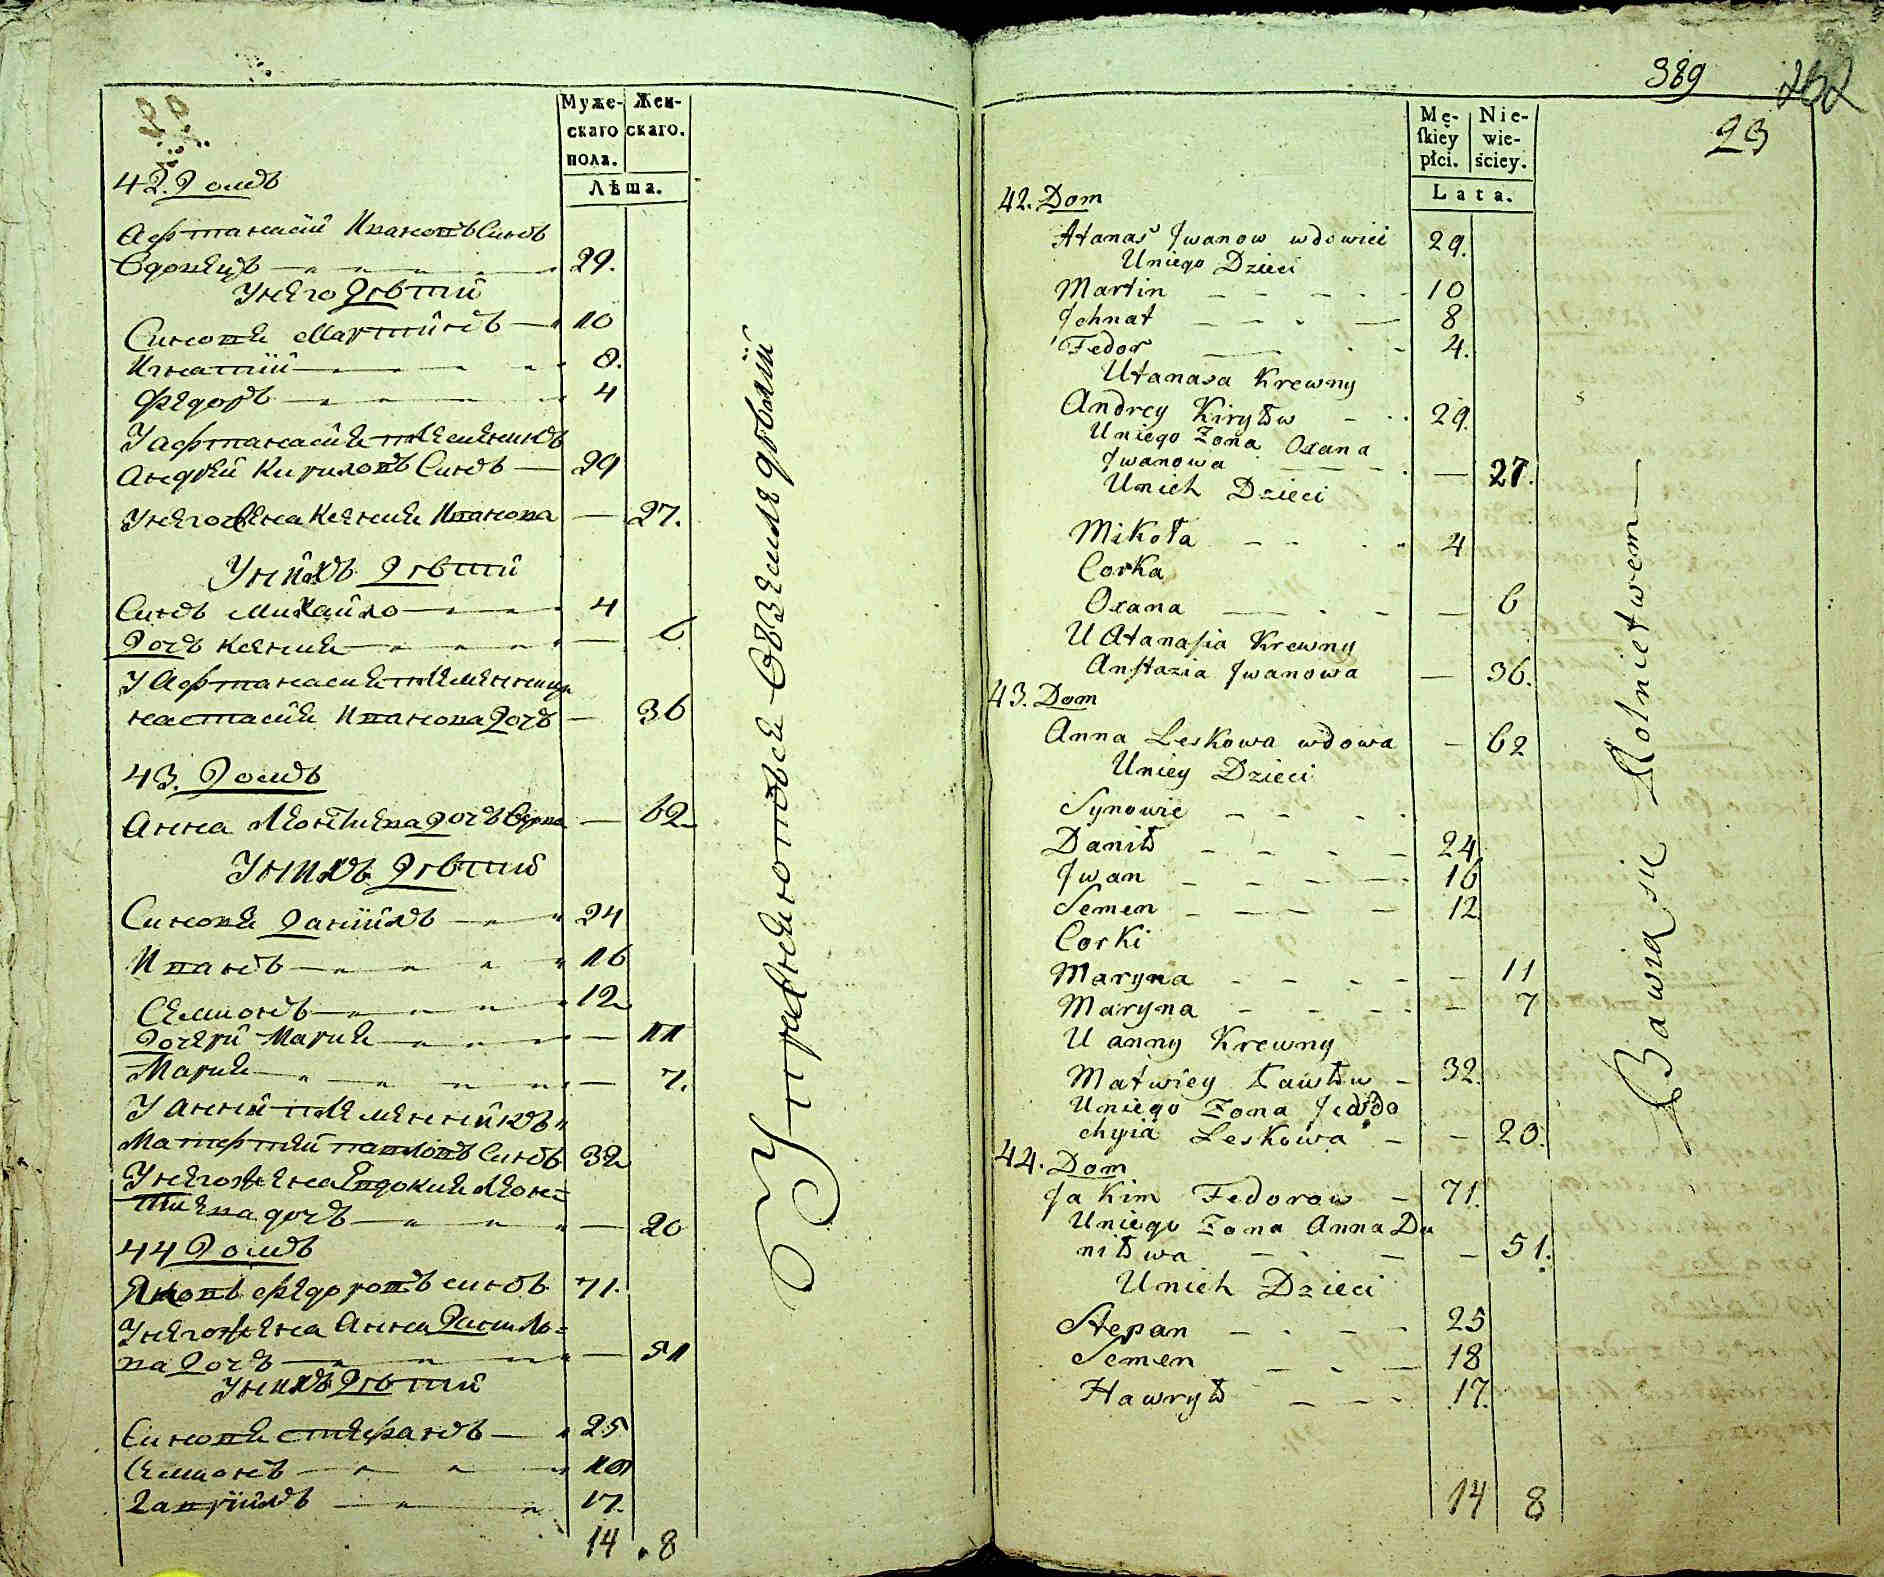 Муже-
скаго
пола.
Жен-
скаго.
Лѣта.
42. Домъ
Афтанасий Ивановъ Синъ
Вдовецъ 29.
У него Дѣтти
Синовя Марттинъ 10
Игнатий 8.
Федоръ 4
У афтанасия племенникъ
Андрей Кириловъ Синъ 29
У него жена Ксения Иванова 27.
У нихъ Дѣтти
Синъ Михайло 4
Дочъ Ксения 6
У Афтанасия племенница
Настасия Иванова Дочъ 36
43. Домъ
Анна Леонтиева дочъ Вдова 62
У нихъ Дѣтти
Синовя Даниилъ 24
Иванъ 16
Семионъ 12
Дочери Мария 11
Мария 7.
У Анни племенникъ
Матфтей Павловъ Синъ 32
У него жена Евдокия Леон=
тиева дочъ 20
44 Домъ
Яковъ Федоровъ синъ 71.
У него жена Анна Данило=
ва Дочъ 51
У нихъ Дѣтти
Синовя Стефанъ 25
Семионъ 18
Гавриилъ 17.
14 . 8
Упражняются Вземледѣлии
389
262
23
Mę-
skiey
płci.
Nie-
wie-
ściey.
Lata.
42. Dom
Atanaś Jwanow wdowiec 29.
Uniego Dzieci
Martin 10
Jehnat 8
Fedor 4.
Utanasa Krewny
Andrey Kiryłow 29.
Uniego Zona Oxana
Jwanowa 27.
Unich Dzieci
Mikoła 4
Corka
Oxana 6
U Atanasia Krewny
Anstazia Jwanowa 36.
43. Dom
Anna Leskowa wdowa 62
Uniey Dzieci
Synowie
Danił 24
Jwan 16
Semen 12
Corki
Maryna 11
Maryna 7
U anny Krewny
Matwiey Pawłow 32.
Uniego Zona Jewdo
chyia Leskowa 20.
44. Dom
Jakim Fedorow 71.
Uniego Zona Anna Da
niłowa 51.
Unich Dzieci
Stepan 25
Semen 18
Hawrył 17.
14 8
Bawią się Rolnictwem